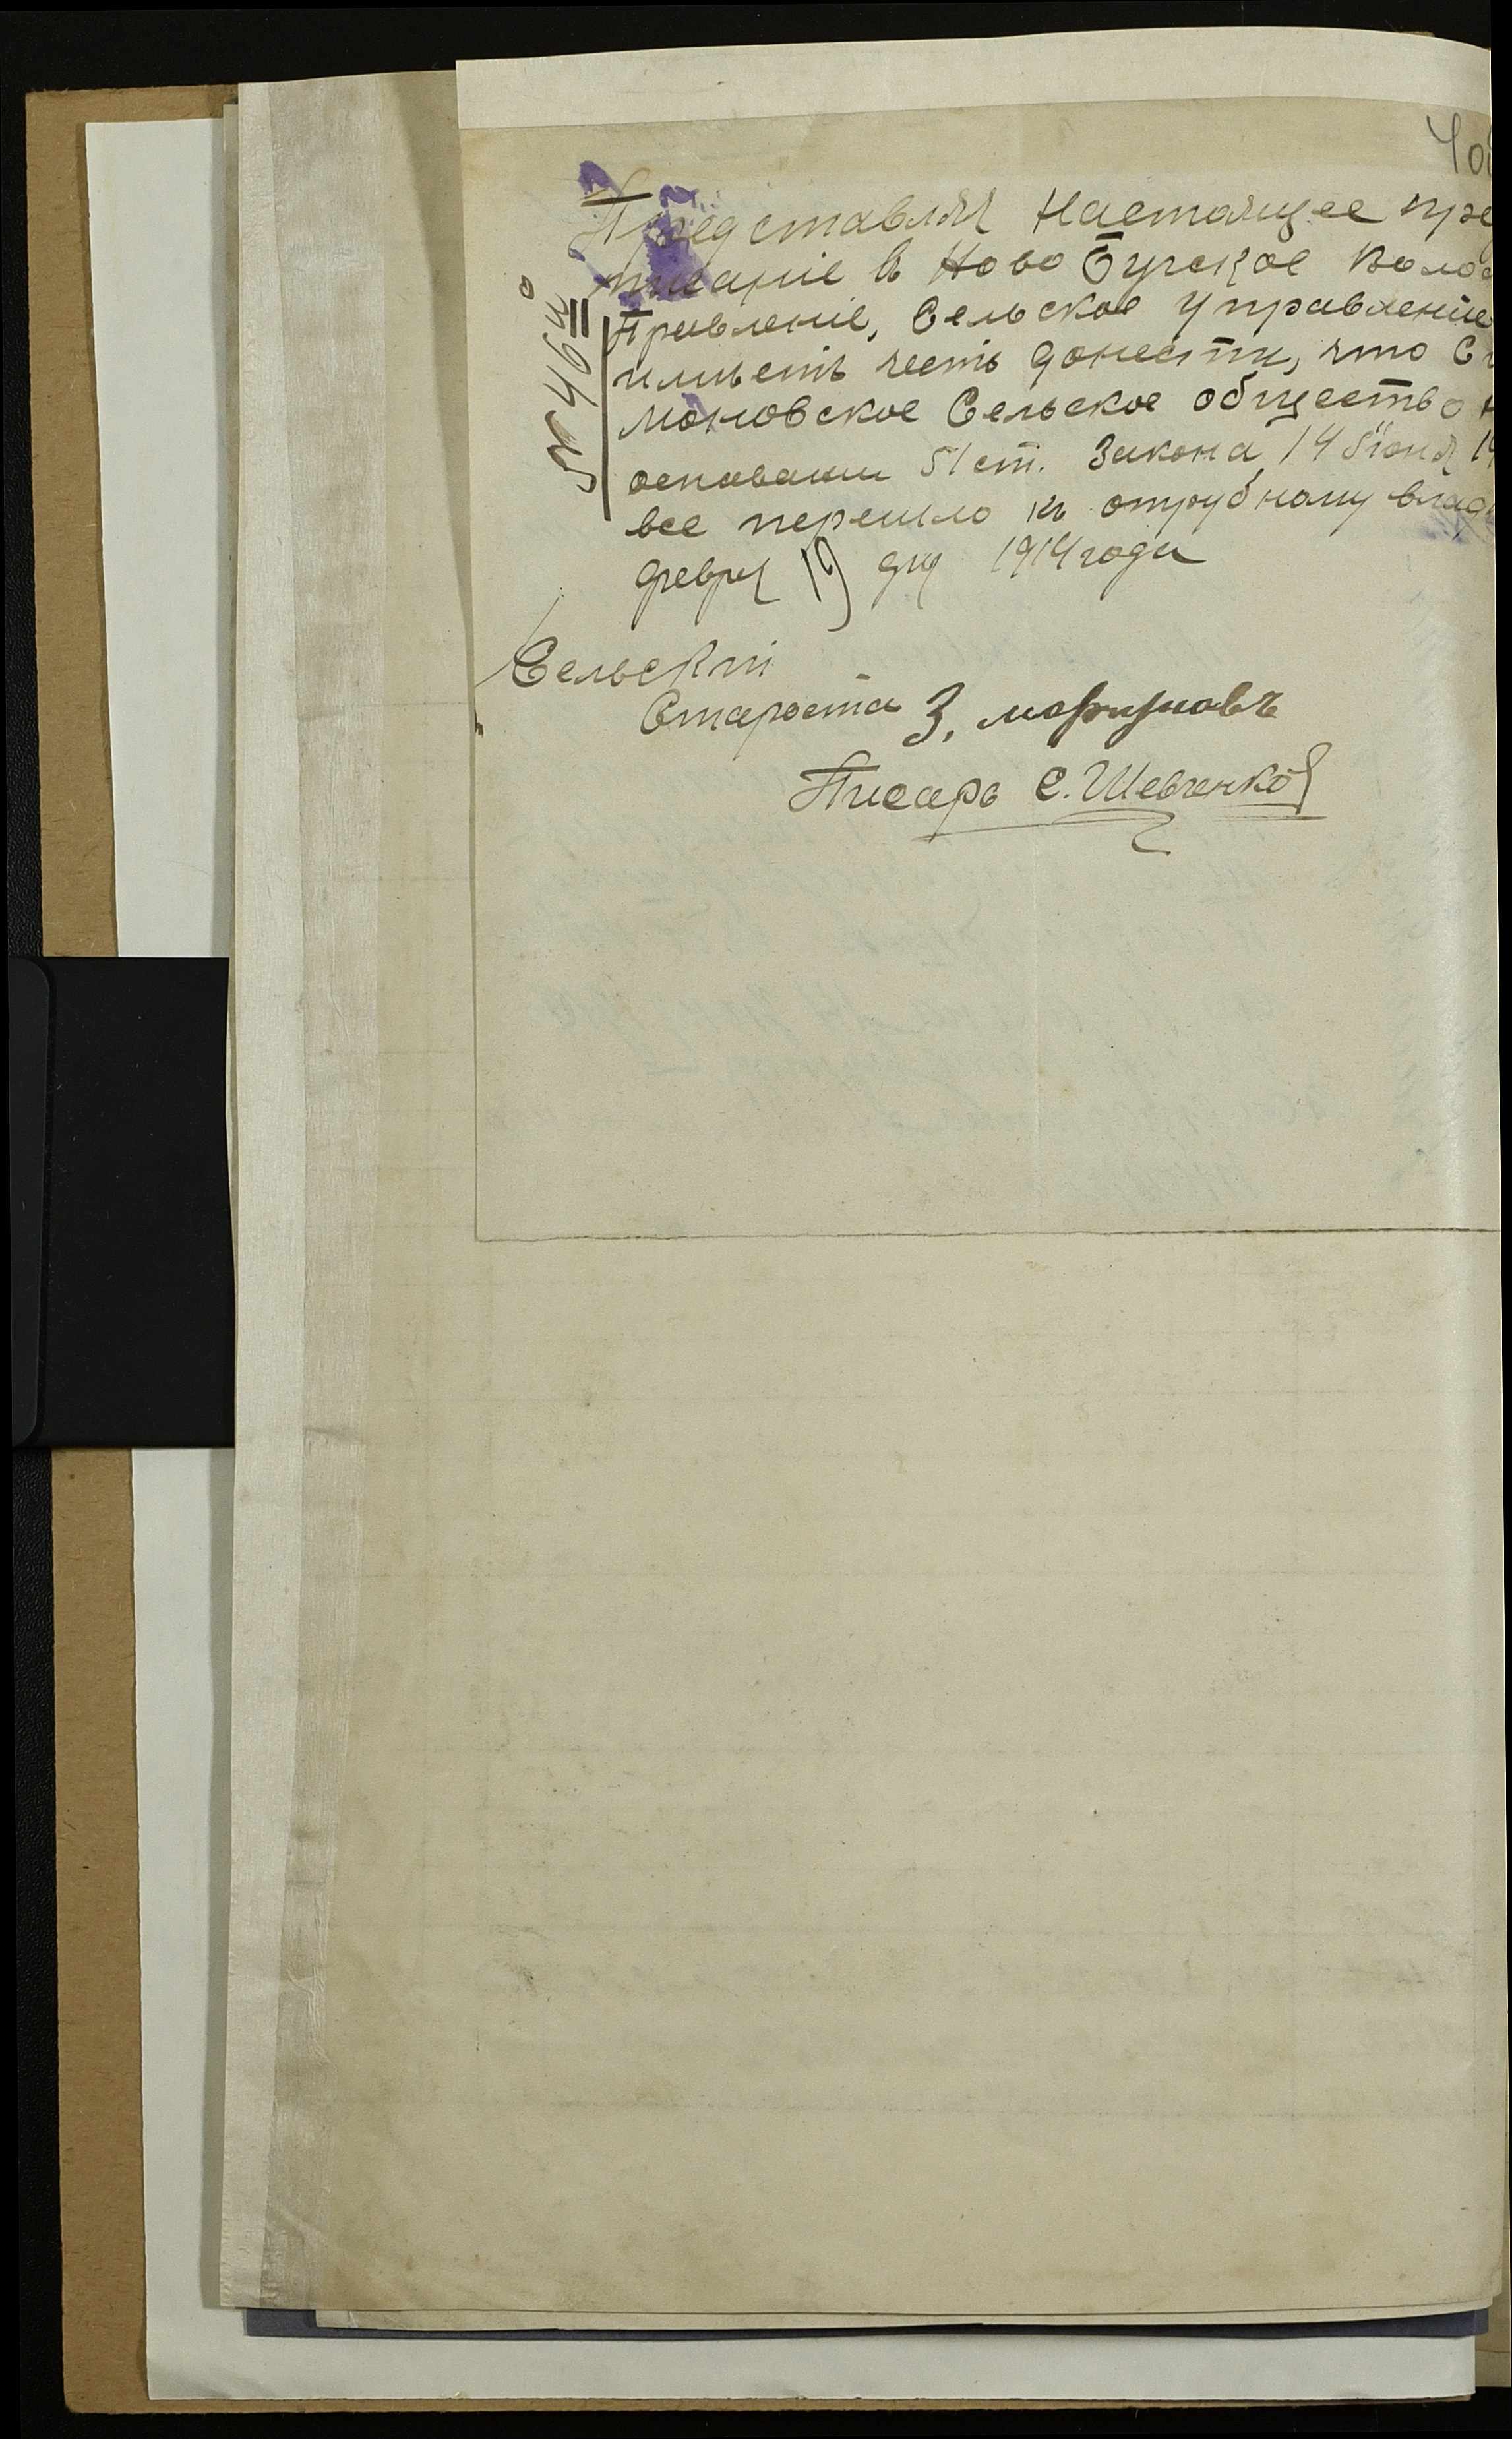 4об
Представляя Настоящее пре
писаніе в Ново Бугское Воло
Правленіе, Сельское Управленіе
имѣетъ честь донести, что С
моновское Сельское общество н
основании 51 ст. Закона, 14 Іюня 19
все перешло къ отрубному влад
февр 19 дня 1914 года
№ 46
Сельскій
Староста З,
Писарь С. Шевченко